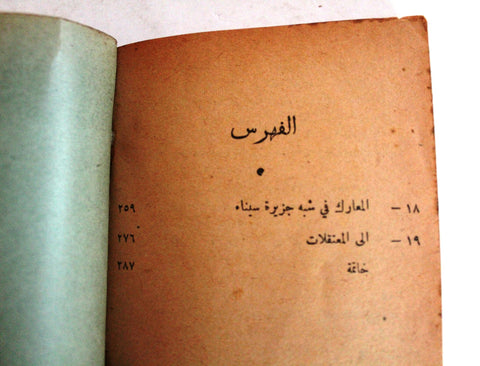 الفهرس
١٨ - المعارك في شبه جزيرة سيناء ٢٥٩
١٩ - الى المعتقلات ٢٧٦
خاتمة ٢٨٧